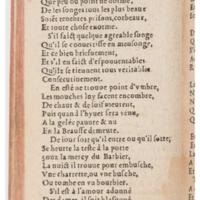 Que peu ou point ne dorme,
De ses songes tous les plus beaux
Sont tenebres prisons, corbeaux,
Et toute chose enorme.
S'il faict quelque agreable songe
Qu'il se conuertisse en mensonge,
Et ce bien briefuement,
Et s'il en faict d'espouuentables
Qu'ilz se tiennent tous veritables
Consecutiuement.
En esté ne trouue point d'vmbre,
Les mouches luy facent encombre,
De chaut & de soif meurent,
Puis quand l'hyuer sera venu,
A la gelée pauure & nu
En la Beausse demeure.
De iour soit qu'il entre ou qu'il sorte,
Se heurte la teste à la porte
pour la mercy du Barbier,
La nuict il trouue pour embusche,
Vne charrette, ou vne husche,
Ou tombe en vn bourbier.
S'il est à l'amour adonné